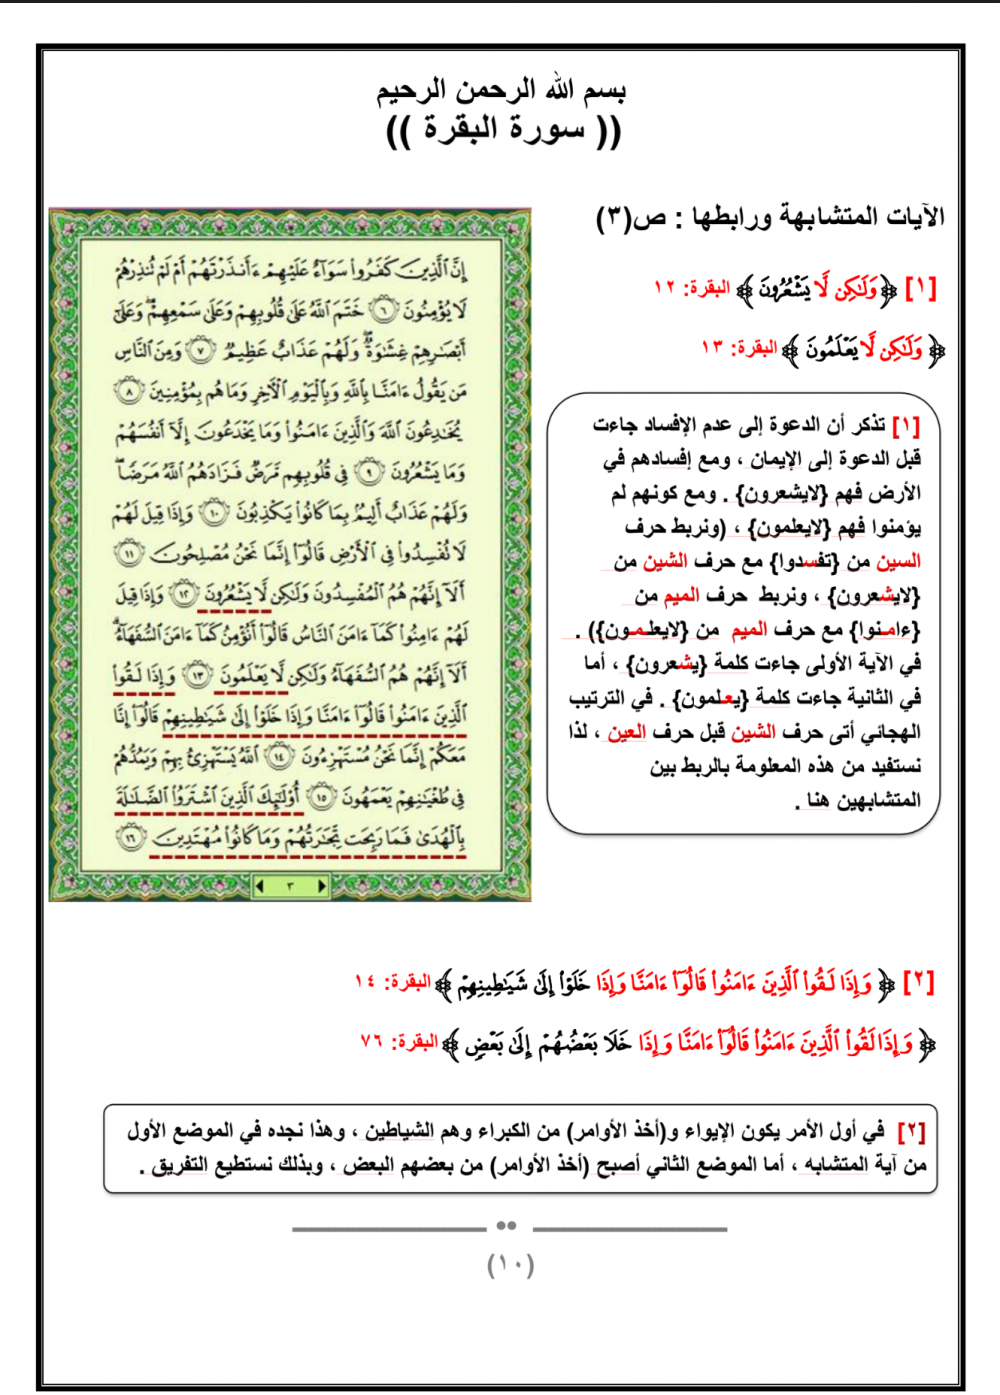 بسم الله الرحمن الرحيم
(( سورة البقرة ))
الآيات المتشابهة ورابطها : ص(٣)
[١] ﴿ وَلَٰكِن لَّا يَشْعُرُونَ ﴾ البقرة: ١٢
﴿ وَلَٰكِن لَّا يَعْلَمُونَ ﴾ البقرة: ١٣
[١] تذكر أن الدعوة إلى عدم الإفساد جاءت
قبل الدعوة إلى الإيمان ، ومع إفسادهم في
الأرض فهم {لايشعرون} . ومع كونهم لم
يؤمنوا فهم {لايعلمون} ، (ونربط حرف
السين من {تفسدوا} مع حرف الشين من
{لايشعرون} ، ونربط حرف الميم من
{ءامـنوا} مع حرف الميم من {لايعلمـون}) .
في الآية الأولى جاءت كلمة {يشعرون} ، أما
في الثانية جاءت كلمة {يعـلمون} . في الترتيب
الهجائي أتى حرف الشين قبل حرف العين ، لذا
نستفيد من هذه المعلومة بالربط بين
المتشابهين هنا .
إِنَّ ٱلَّذِينَ كَفَرُوا۟ سَوَآءٌ عَلَيْهِمْ ءَأَنذَرْتَهُمْ أَمْ لَمْ تُنذِرْهُمْ
لَا يُؤْمِنُونَ ٦ خَتَمَ ٱللَّهُ عَلَىٰ قُلُوبِهِمْ وَعَلَىٰ سَمْعِهِمْ ۖ وَعَلَىٰٓ
أَبْصَٰرِهِمْ غِشَٰوَةٌ ۖ وَلَهُمْ عَذَابٌ عَظِيمٌ ٧ وَمِنَ ٱلنَّاسِ
مَن يَقُولُ ءَامَنَّا بِٱللَّهِ وَبِٱلْيَوْمِ ٱلْءَاخِرِ وَمَا هُم بِمُؤْمِنِينَ ٨
يُخَٰدِعُونَ ٱللَّهَ وَٱلَّذِينَ ءَامَنُوا۟ وَمَا يَخْدَعُونَ إِلَّآ أَنفُسَهُمْ
وَمَا يَشْعُرُونَ ٩ فِى قُلُوبِهِم مَّرَضٌ فَزَادَهُمُ ٱللَّهُ مَرَضًا ۖ
وَلَهُمْ عَذَابٌ أَلِيمٌۢ بِمَا كَانُوا۟ يَكْذِبُونَ ١٠ وَإِذَا قِيلَ لَهُمْ
لَا تُفْسِدُوا۟ فِى ٱلْأَرْضِ قَالُوٓا۟ إِنَّمَا نَحْنُ مُصْلِحُونَ ١١
أَلَآ إِنَّهُمْ هُمُ ٱلْمُفْسِدُونَ وَلَٰكِن لَّا يَشْعُرُونَ ١٢ وَإِذَا قِيلَ
لَهُمْ ءَامِنُوا۟ كَمَآ ءَامَنَ ٱلنَّاسُ قَالُوٓا۟ أَنُؤْمِنُ كَمَآ ءَامَنَ ٱلسُّفَهَآءُ ۗ
أَلَآ إِنَّهُمْ هُمُ ٱلسُّفَهَآءُ وَلَٰكِن لَّا يَعْلَمُونَ ١٣ وَإِذَا لَقُوا۟
ٱلَّذِينَ ءَامَنُوا۟ قَالُوٓا۟ ءَامَنَّا وَإِذَا خَلَوْا۟ إِلَىٰ شَيَٰطِينِهِمْ قَالُوٓا۟ إِنَّا
مَعَكُمْ إِنَّمَا نَحْنُ مُسْتَهْزِءُونَ ١٤ ٱللَّهُ يَسْتَهْزِئُ بِهِمْ وَيَمُدُّهُمْ
فِى طُغْيَٰنِهِمْ يَعْمَهُونَ ١٥ أُو۟لَٰٓئِكَ ٱلَّذِينَ ٱشْتَرَوُا۟ ٱلضَّلَٰلَةَ
بِٱلْهُدَىٰ فَمَا رَبِحَت تِّجَٰرَتُهُمْ وَمَا كَانُوا۟ مُهْتَدِينَ ١٦
٣
[٢] ﴿ وَإِذَا لَقُوا۟ ٱلَّذِينَ ءَامَنُوا۟ قَالُوٓا۟ ءَامَنَّا وَإِذَا خَلَوْا۟ إِلَىٰ شَيَٰطِينِهِمْ ﴾ البقرة: ١٤
﴿ وَإِذَا لَقُوا۟ ٱلَّذِينَ ءَامَنُوا۟ قَالُوٓا۟ ءَامَنَّا وَإِذَا خَلَا بَعْضُهُمْ إِلَىٰ بَعْضٍ ﴾ البقرة: ٧٦
[٢] في أول الأمر يكون الإيواء و(أخذ الأوامر) من الكبراء وهم الشياطين ، وهذا نجده في الموضع الأول
من آية المتشابه ، أما الموضع الثاني أصبح (أخذ الأوامر) من بعضهم البعض ، وبذلك نستطيع التفريق .
(١٠)